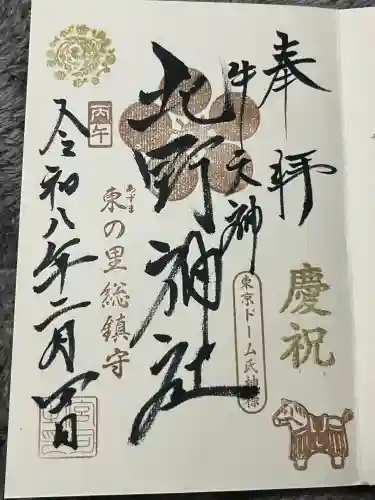 奉拝
慶祝
牛天神
東京ドーム氏神様
北野神社
あずま
東の里総鎮守
丙午
令和八年二月四日